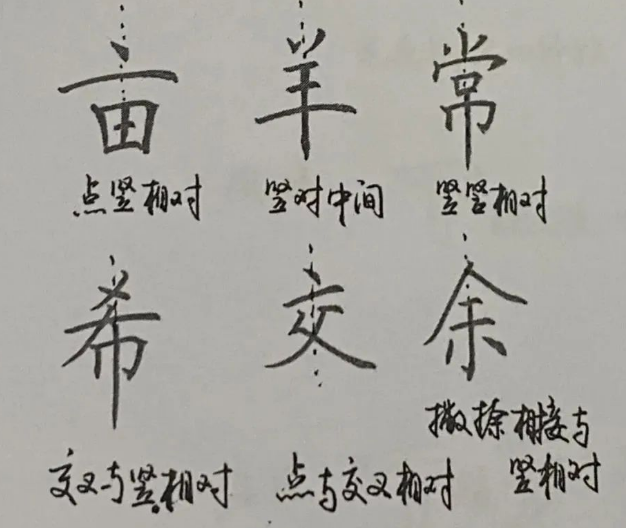 亩 羊 常
点竖相对 竖对中间 竖竖相对
希 交 余
撇捺相接与
交叉与竖相对 点与交叉相对 竖相对